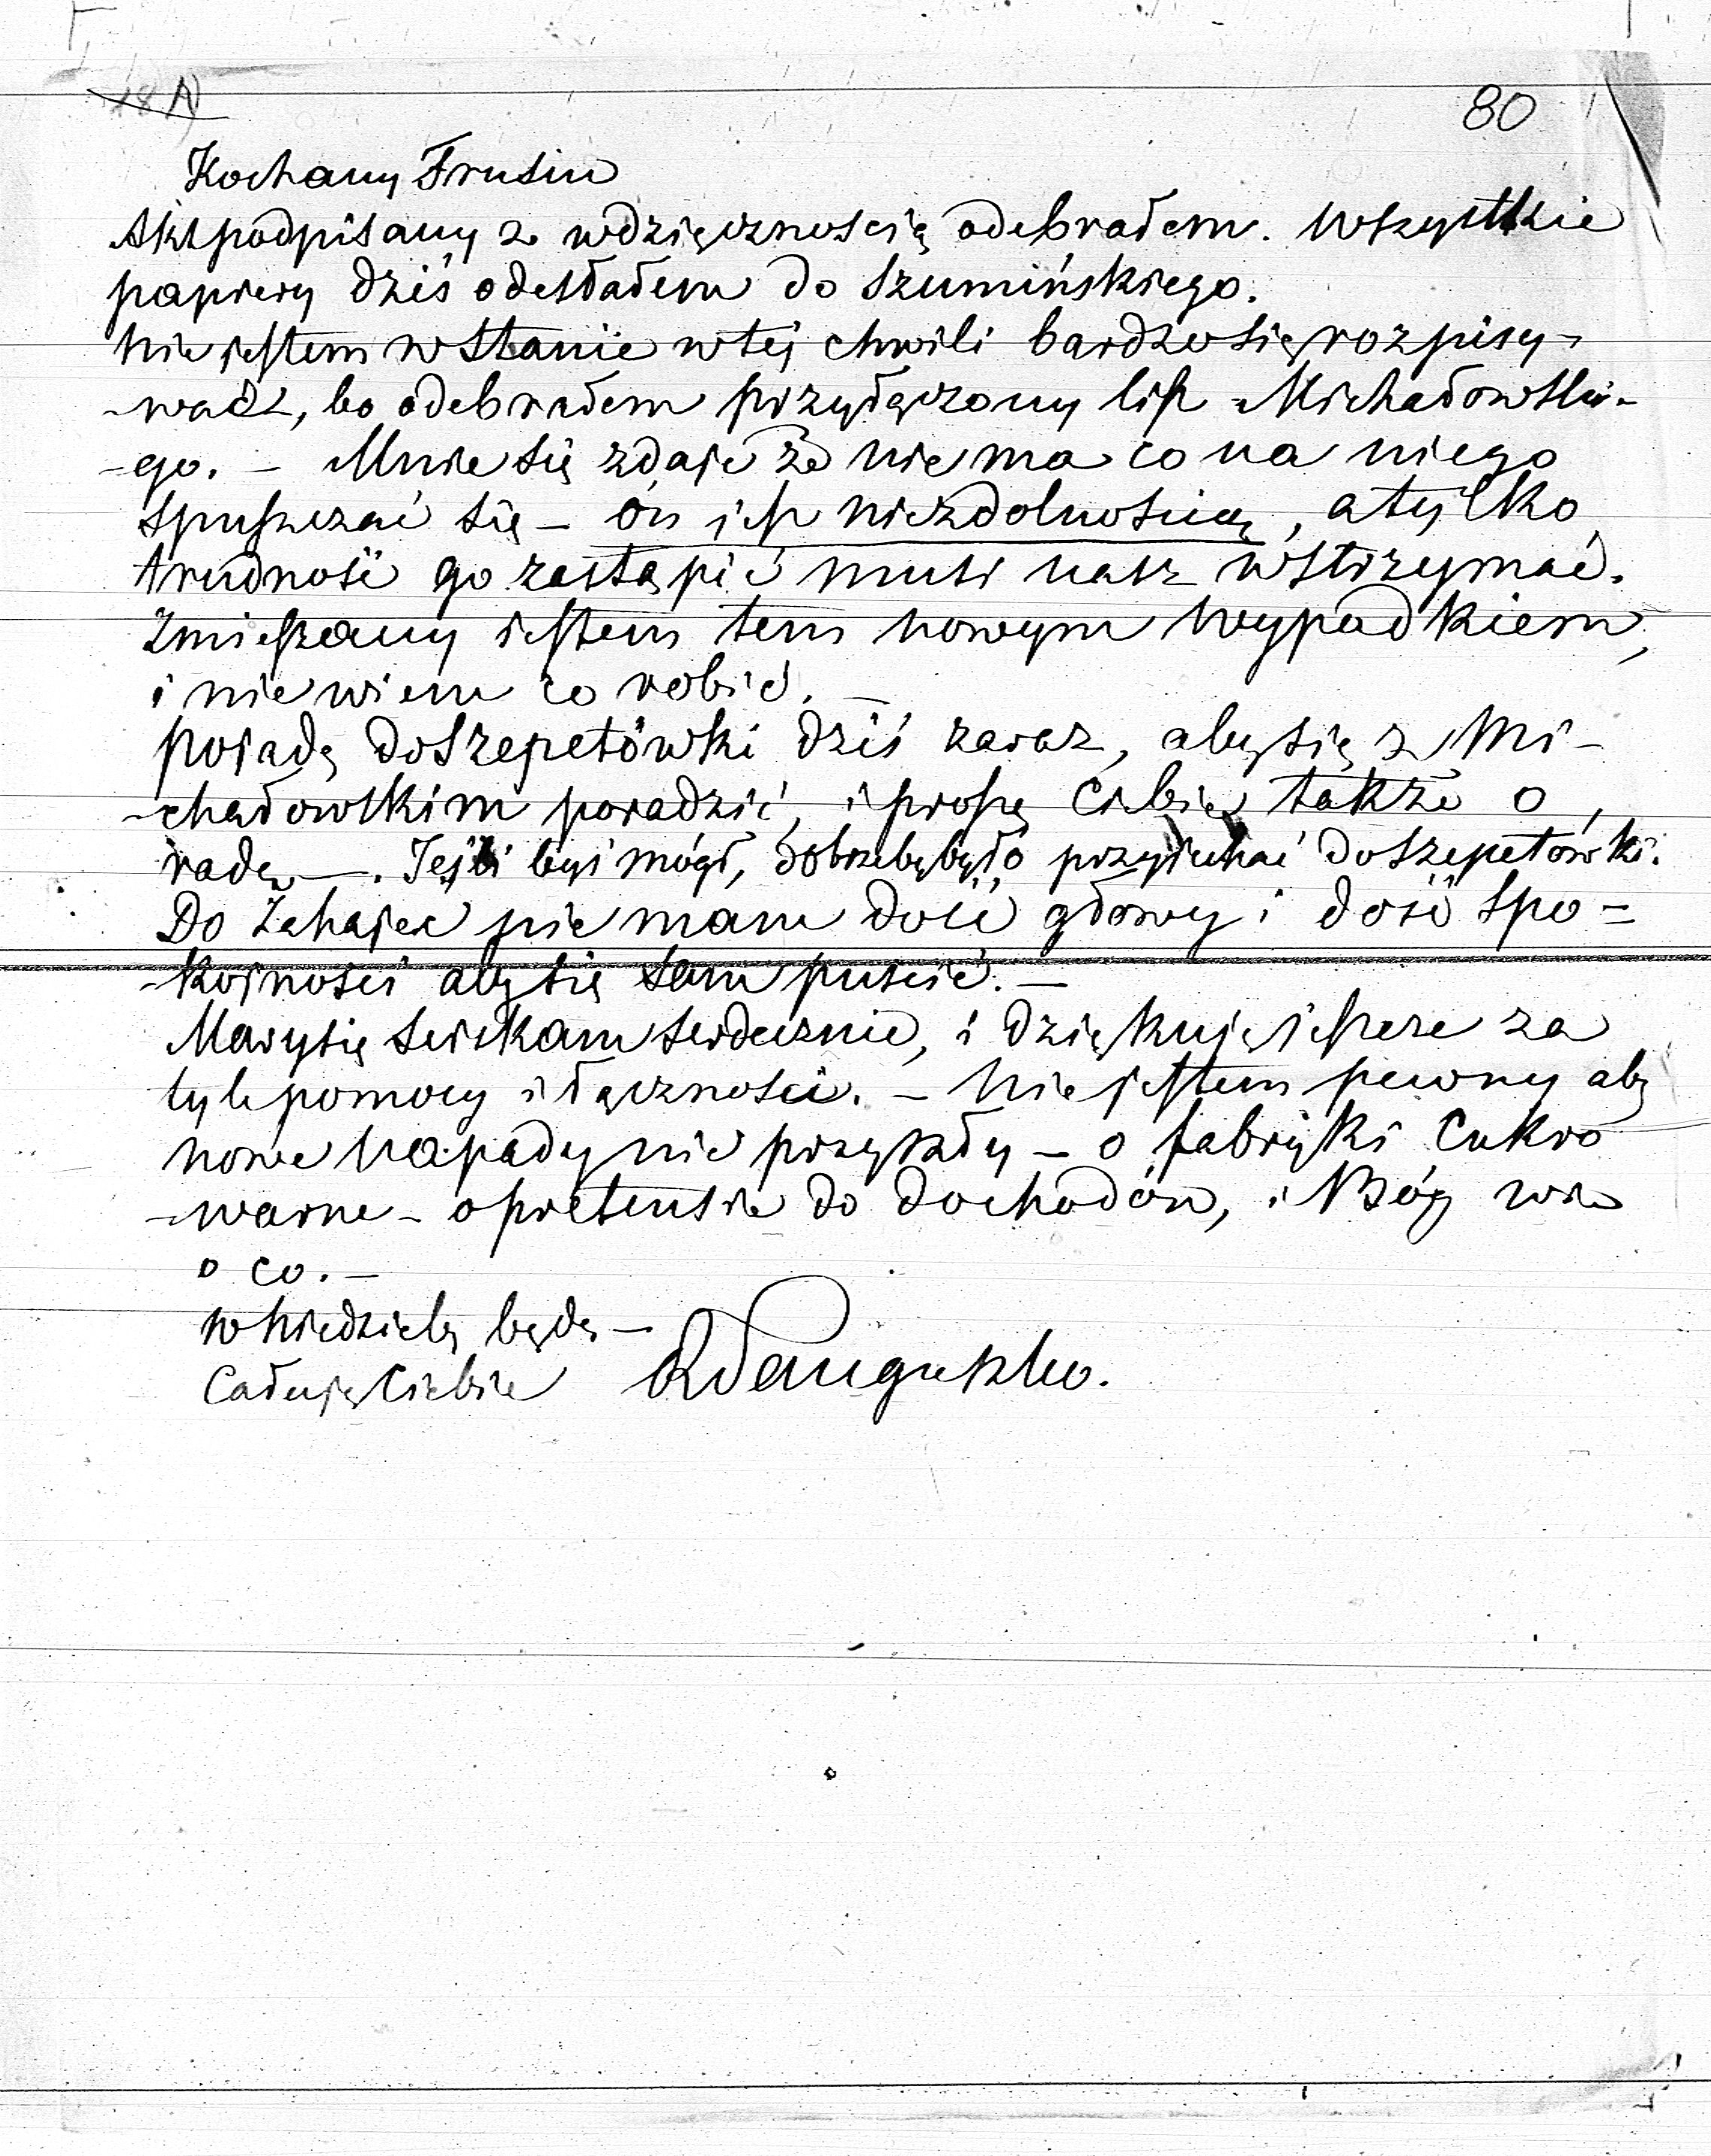 18 A)
80
Kochany Frusiu
Akt podpisany z wdzięcznością odebrałem. Wszystkie
papiery dziś odesłałem do Szumińskiego.
Nie jestem w stanie w tej chwili bardzo się rozpisy-
-wać, bo odebrałem przyłączony list Michałowski-
-ego. – Mnie się zdaje że nie ma co na niego
spuszczać się – on jest niezdolnością, a tylko
trudność go zastąpić musi nas wstrzymać.
Zmieszany jestem tem nowym wypadkiem,
i nie wiem co robić. –
Pojadę do Szepetówki dziś zaraz, aby się z Mi-
-chałowskim poradzić, i proszę Ciebie także o
radę –. Jeśli byś mógł, dobrze by było przyjechać do Szepetówki.
Do Zahajec nie mam dość głowy i dość spo-
-kojności aby się sam puścić. –
Marysię ściskam serdecznie, i dziękuję jeszcze za
tyle pomocy i łączności. – Nie jestem pewny aby
nowe napady nie przyszły – o fabryki Cukro
-warne – o pretensie do dochodów, i Bóg wie
o co. –
w Niedzielę będę –
Całuję Ciebie RSanguszko.